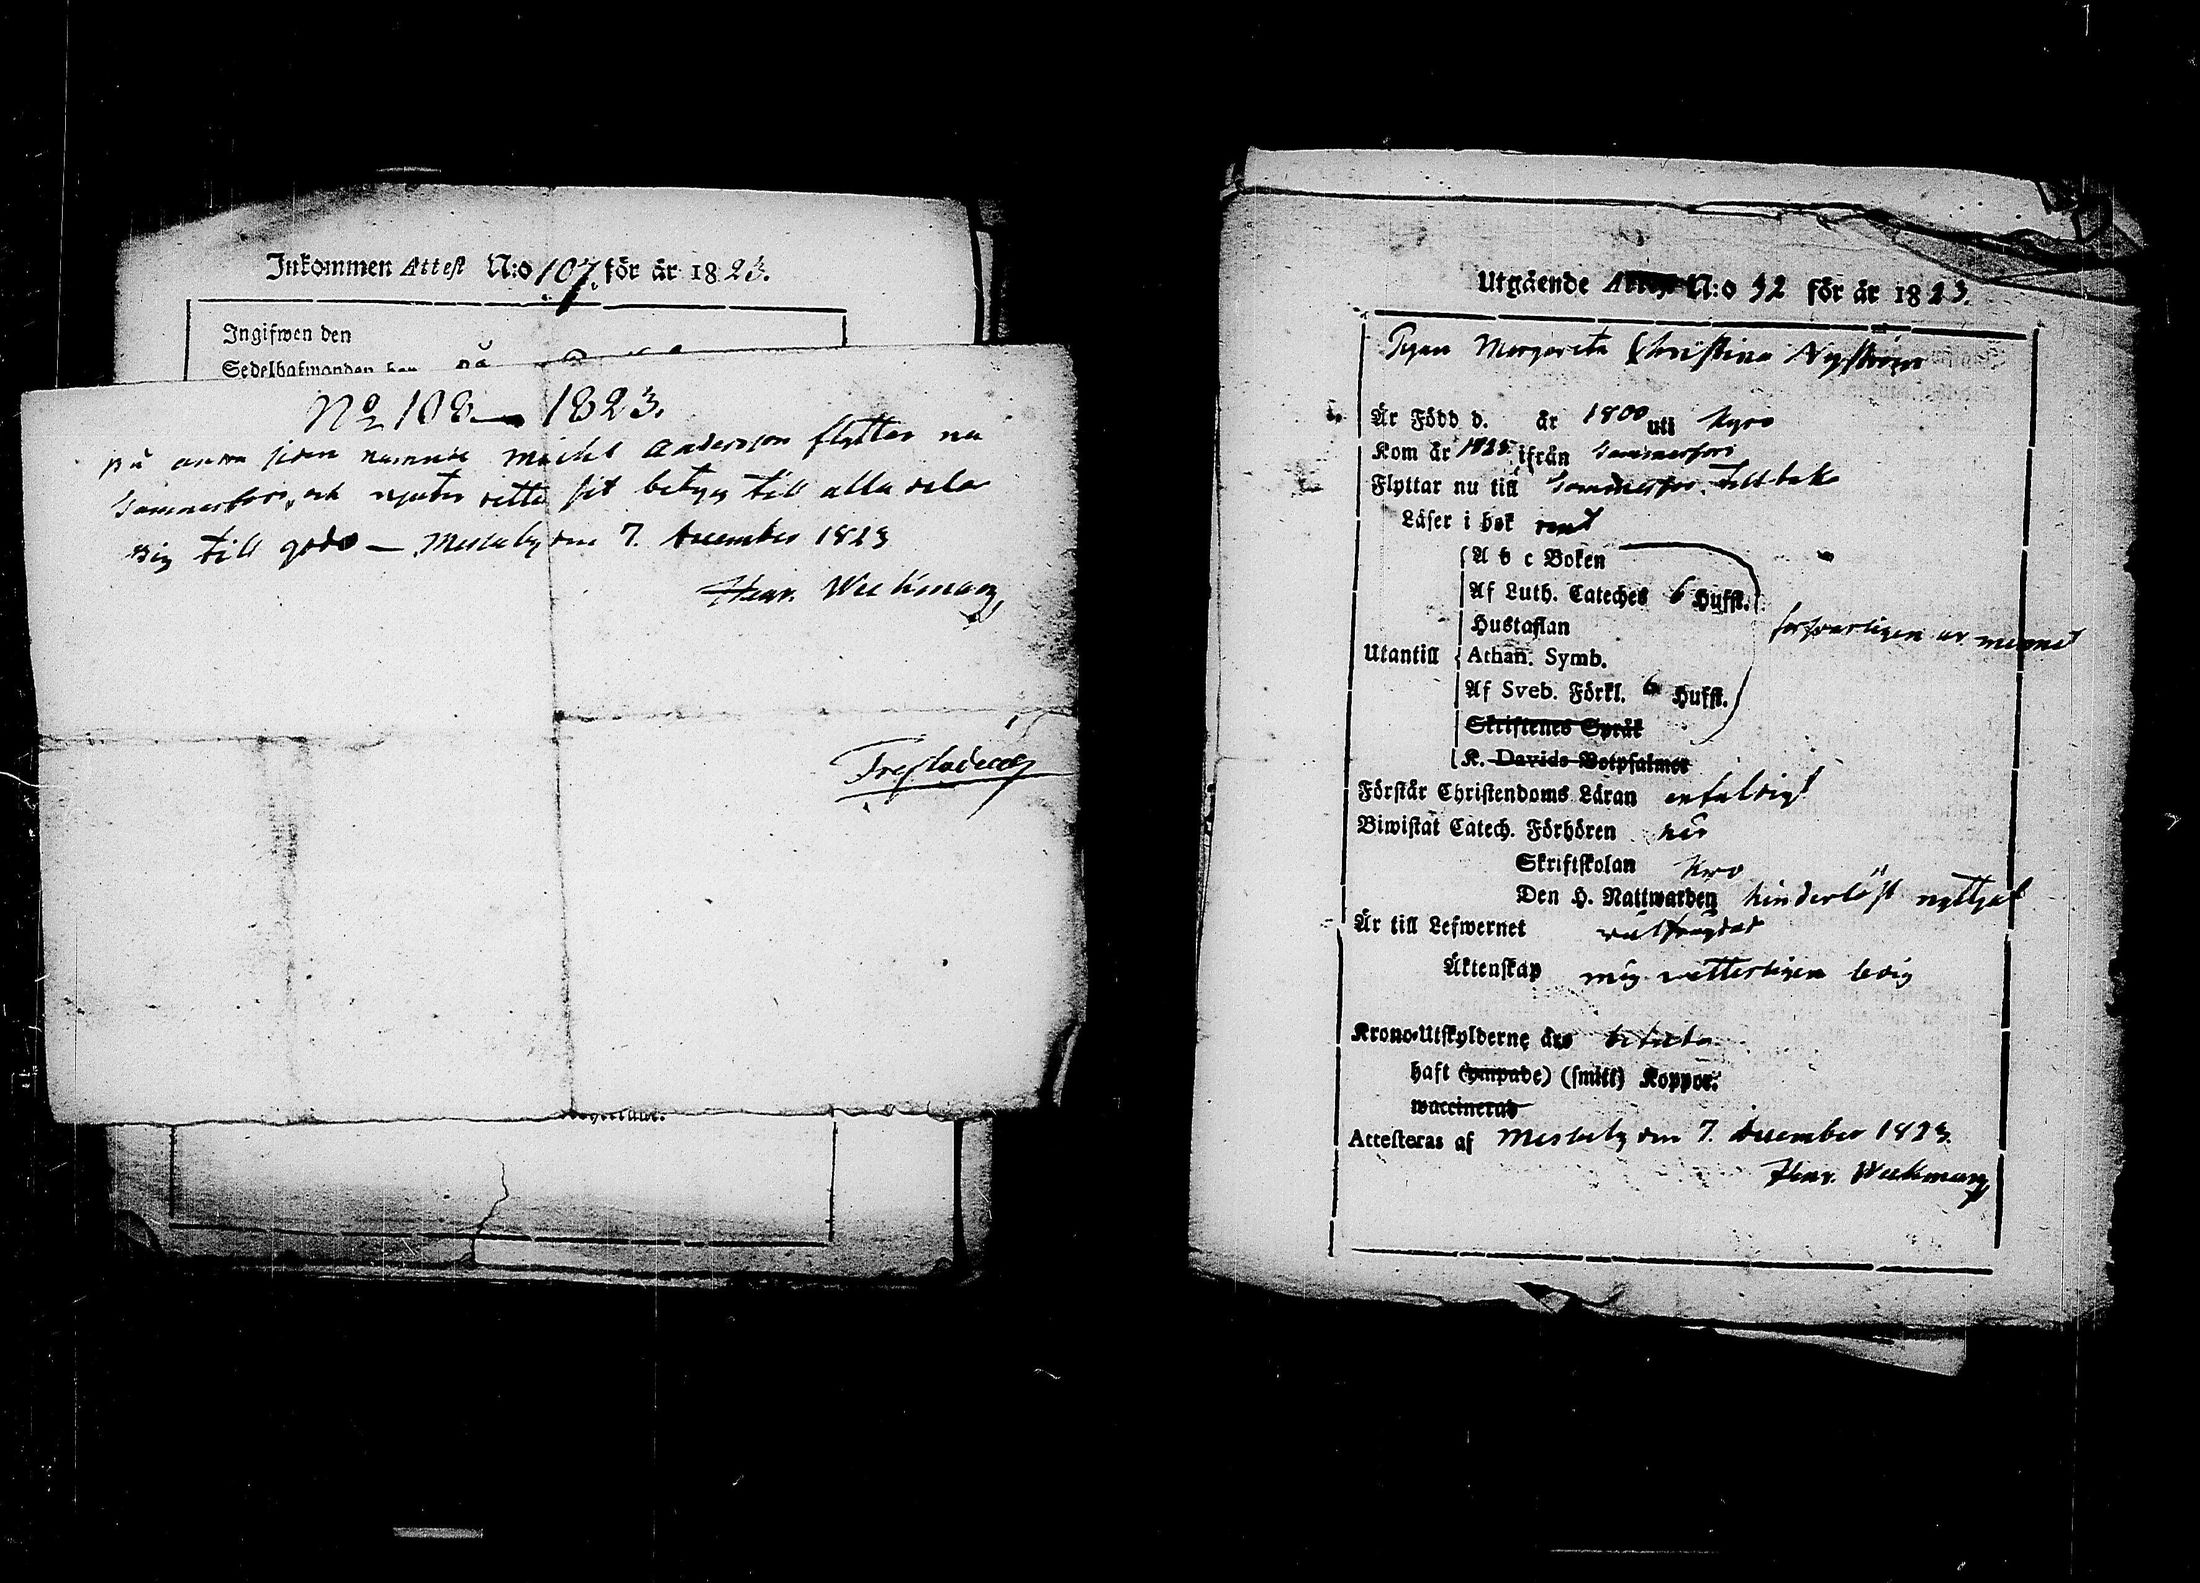 Inkommen Attest N:o 107. för år 1823.
Ingifwen den
Sedelhafwanden
No 108 — 1823.
På andra sidan namnde Michel Andersson flyttar nu
till Gammerfors, och njuter detta sit betyg till alla delar
sig till godo — Messuby den 7. December 1823
Henr. Weckman,
Utgående Attest N:o 32 för år 1823.
Pigan Margareta Christina Nyström
Är Född d. år 1800 uti Kyro
Kom år 1823 ifrån
Flyttar nu till tillbaka
Läser i bok rent
A b c Boken
Af Luth. Cateches 6 Hufst.
Hustaflan
försvarligen ur minnet
Utantill Athan. Symb.
Af Sveb. Förkl. 6 Hufst.
Skriftenes Språk
K. Davids Botpsalmer
Förstår Christendoms Läran enfaldigt
Biwistat Catech. Förhören här
Skriftskolan Kyro
Den H. Nattwarden hinderlöst nyttjat
Är till Lefwernet välfrägdad
Äktenskap mig vetterligen ledig
Krono-Utskylderne äro betalta
haft (ympade) (smitt) Koppor.
waccinerad
Attesteras af Messuby den 7. December 1823.
Henr. Weckman,